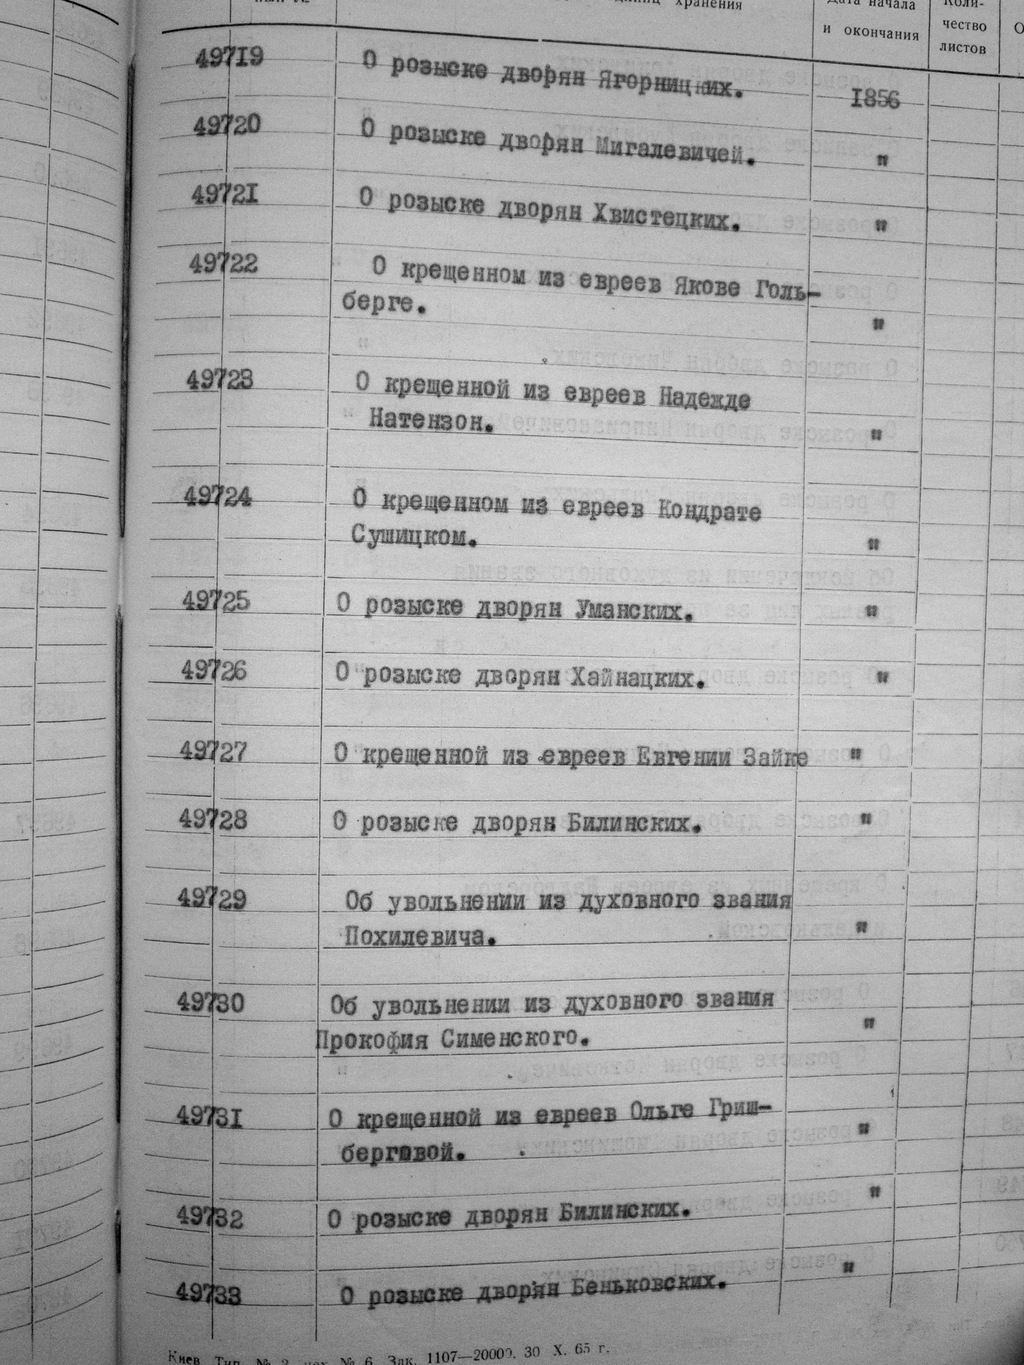 хранения
Дата начала
и окончания
Коли-
чество
листов
49719 О розыске дворян Ягорницких. 1856
49720 О розыске дворян Мигалевичей. "
49721 О розыске дворян Хвистецких. "
49722 О крещенном из евреев Якове Голь-
берге. "
49723 О крещенной из евреев Надежде
Натензон. "
49724 О крещенном из евреев Кондрате
Сушицком. "
49725 О розыске дворян Уманских. "
49726 О розыске дворян Хайнацких. "
49727 О крещенной из евреев Евгении Зайке "
49728 О розыске дворян Билинских. "
49729 Об увольнении из духовного звания
Похилевича. "
49730 Об увольнении из духовного звания
Прокофия Сименского. "
49731 О крещенной из евреев Ольге Гриш-
берговой. "
49732 О розыске дворян Билинских. "
49733 О розыске дворян Беньковских. "
Киев Тип. № 3 цех № 6 Зак. 1107—20000. 30 X. 65 г.